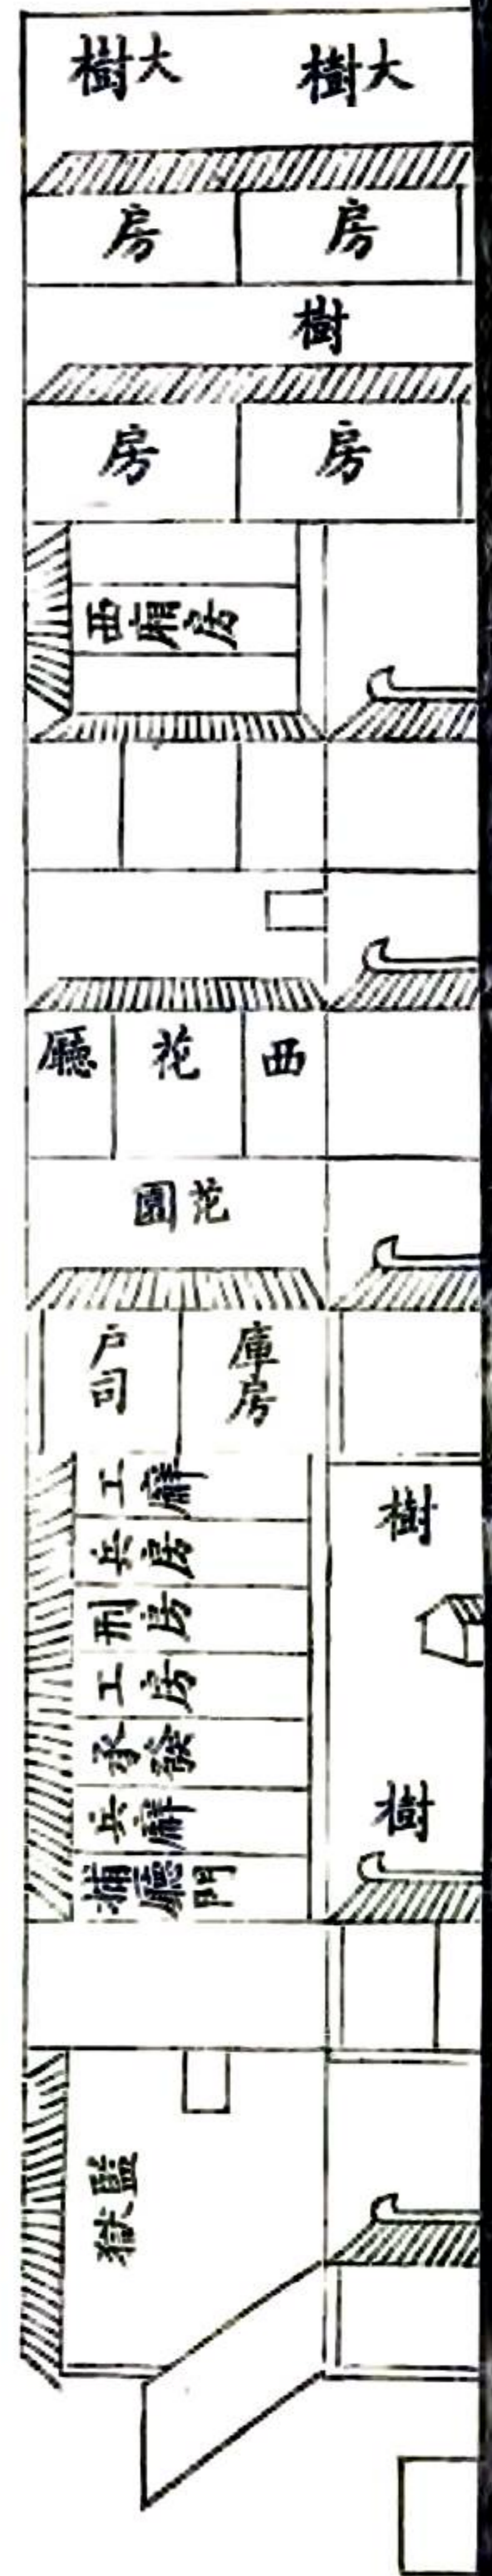 大樹
大樹
房
房
樹
房
房
西廂房
西花廳
花園
庫房
戶司
工廨
兵房
刑房
工房
承發
兵廨
捕廳門
樹
樹
監獄